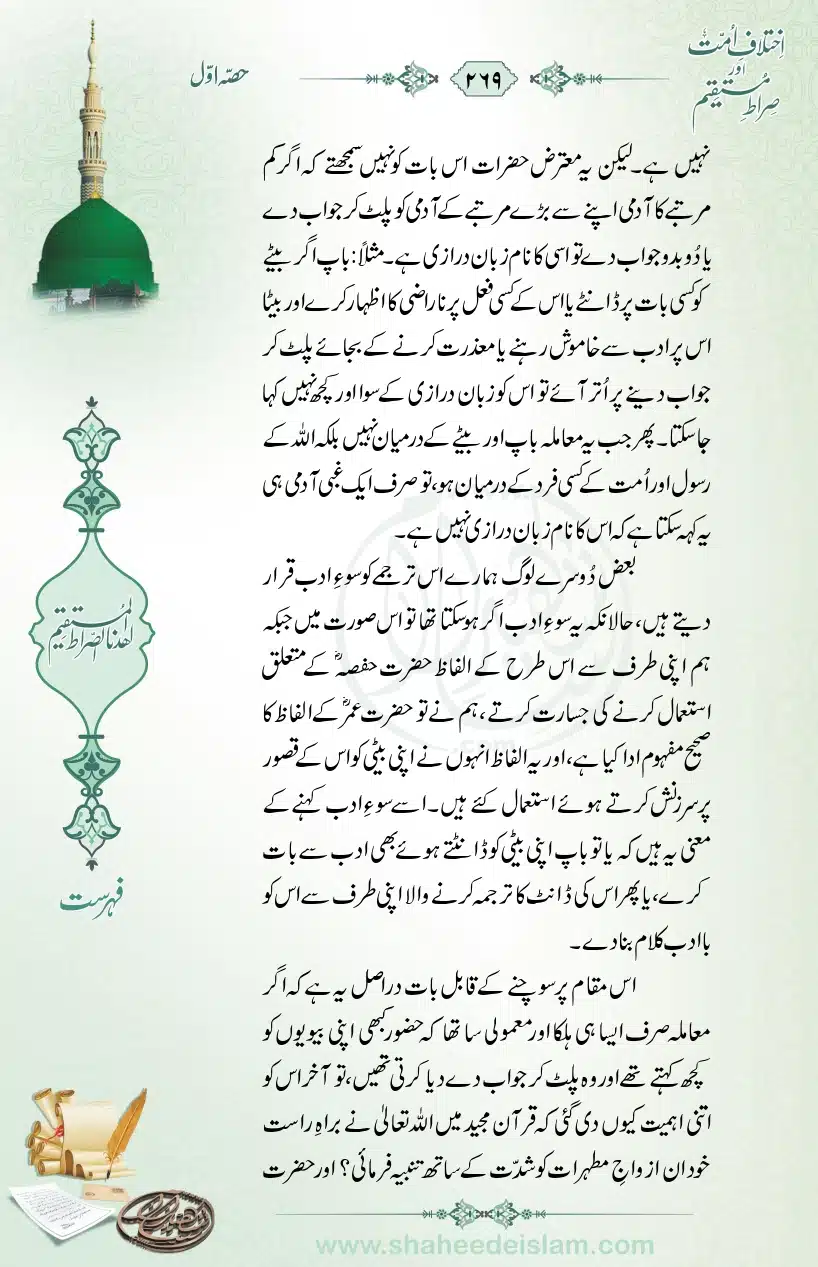 اِختلافِ اُمّت
اور
صِراطِ مُستقیم
۲۶۹
حصّہ اوّل
نہیں ہے۔ لیکن یہ معترض حضرات اس بات کو نہیں سمجھتے کہ اگر کم
مرتبے کا آدمی اپنے سے بڑے مرتبے کے آدمی کو پلٹ کر جواب دے
یا دُوبدو جواب دے تو اسی کا نام زبان درازی ہے۔ مثلاً: باپ اگر بیٹے
کو کسی بات پر ڈانٹے یا اس کے کسی فعل پر ناراضی کا اظہار کرے اور بیٹا
اس پر ادب سے خاموش رہنے یا معذرت کرنے کے بجائے پلٹ کر
جواب دینے پر اُتر آئے تو اس کو زبان درازی کے سوا اور کچھ نہیں کہا
جاسکتا۔ پھر جب یہ معاملہ باپ اور بیٹے کے درمیان نہیں بلکہ اللہ کے
رسول اور اُمت کے کسی فرد کے درمیان ہو، تو صرف ایک غبی آدمی ہی
یہ کہہ سکتا ہے کہ اس کا نام زبان درازی نہیں ہے۔
بعض دُوسرے لوگ ہمارے اس ترجمے کو سوءِ ادب قرار
دیتے ہیں، حالانکہ یہ سوءِ ادب اگر ہوسکتا تھا تو اس صورت میں جبکہ
ہم اپنی طرف سے اس طرح کے الفاظ حضرت حفصہؓ کے متعلق
استعمال کرنے کی جسارت کرتے، ہم نے تو حضرت عمرؓ کے الفاظ کا
صحیح مفہوم ادا کیا ہے، اور یہ الفاظ انہوں نے اپنی بیٹی کو اس کے قصور
پر سرزنش کرتے ہوئے استعمال کئے ہیں۔ اسے سوءِ ادب کہنے کے
معنی یہ ہیں کہ یا تو باپ اپنی بیٹی کو ڈانٹتے ہوئے بھی ادب سے بات
کرے، یا پھر اس کی ڈانٹ کا ترجمہ کرنے والا اپنی طرف سے اس کو
باادب کلام بنادے۔
اس مقام پر سوچنے کے قابل بات دراصل یہ ہے کہ اگر
معاملہ صرف ایسا ہی ہلکا اور معمولی سا تھا کہ حضور کبھی اپنی بیویوں کو
کچھ کہتے تھے اور وہ پلٹ کر جواب دے دیا کرتی تھیں، تو آخر اس کو
اتنی اہمیت کیوں دی گئی کہ قرآن مجید میں اللہ تعالیٰ نے براہِ راست
خود ان ازواجِ مطہرات کو شدّت کے ساتھ تنبیہ فرمائی؟ اور حضرت
اهدنا الصّراط المُستقیم
فہرست
www.shaheedeislam.com